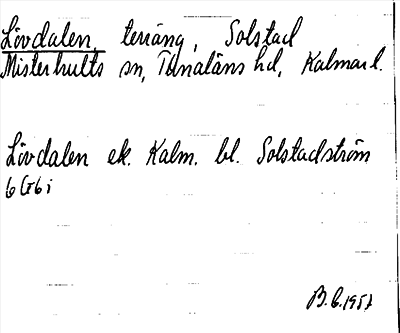 Lövdalen, terräng, Solstad
Misterhults sn, Tunaläns hd, Kalmar l.
Lövdalen ek. Kalm. bl. Solstadström
6G6i
B.G. 1957